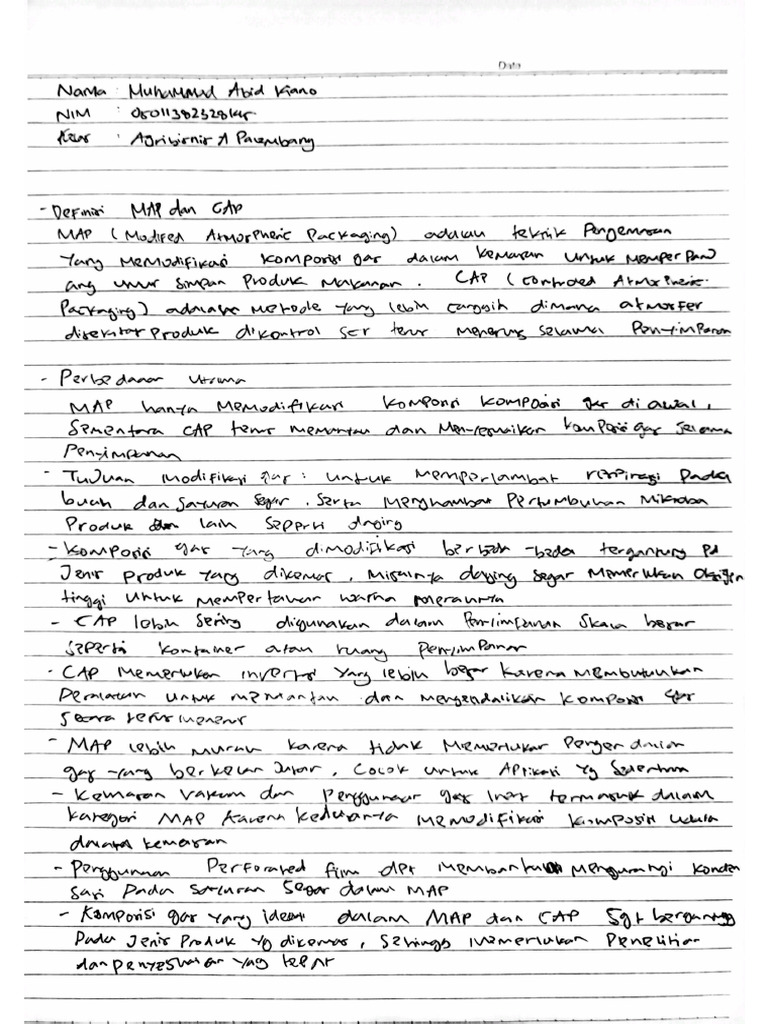 Date
Nama : Muhammad Abid Kiano
NIM : 05011382328145
Kelas : Agribisnis A Palembang
- Definisi MAP dan CAP
MAP (Modifed Atmospheric Packaging) adalah teknik Pengemasan
Yang Memodifikasi komposisi gas dalam kemasan untuk memperpanj
ang umur simpan Produk Makanan. CAP (controled Atmospheric
Packaging) adalah metode yang lebih canggih dimana atmosfer
disekitar Produk dikontrol secara terus menerus selama Penyimpanan
- Perbedaan utama
MAP hanya Memodifikasi komposisi komposisi gas di awal,
Sementara CAP terus memantau dan Menyesuaikan komposisi gas selama
Penyimpanan
- Tujuan modifikasi gas : untuk memperlambat respirasi Pada
buah dan sayuran segar, serta menghambat Pertumbuhan Mikroba
Produk lain seperti daging
- Komposisi gas yang dimodifikasi berbeda-beda tergantung Pd
Jenis Produk yang dikemas, Misalnya daging segar Memerlukan Oksigen
tinggi untuk mempertahan warna merahnya
- CAP lebih sering digunakan dalam Penyimpanan skala besar
seperti kontainer atau ruang penyimpanan
- CAP Memerlukan investasi yang lebih besar karena membutuhkan
Peralatan untuk memantau dan mengendalikan komposisi gas
secara terus menerus
- MAP lebih murah karena tidak Memerlukan Pengendalian
gas yang berkelanjutan, Cocok untuk Aplikasi Yg Sederhana
- Kemasan vakum dan Penggunaan gas Inert termasuk dalam
kategori MAP karena keduanya memodifikasi komposisi udara
dalam kemasan
- Penggunaan Perforated film dpt membantu mengurangi konden
sasi Pada sayuran segar dalam MAP
- Komposisi gas yang ideal dalam MAP dan CAP Sgt bergantung
Pada Jenis Produk yg dikemas, sehingga memerlukan Penelitian
dan penyesuaian yang tepat